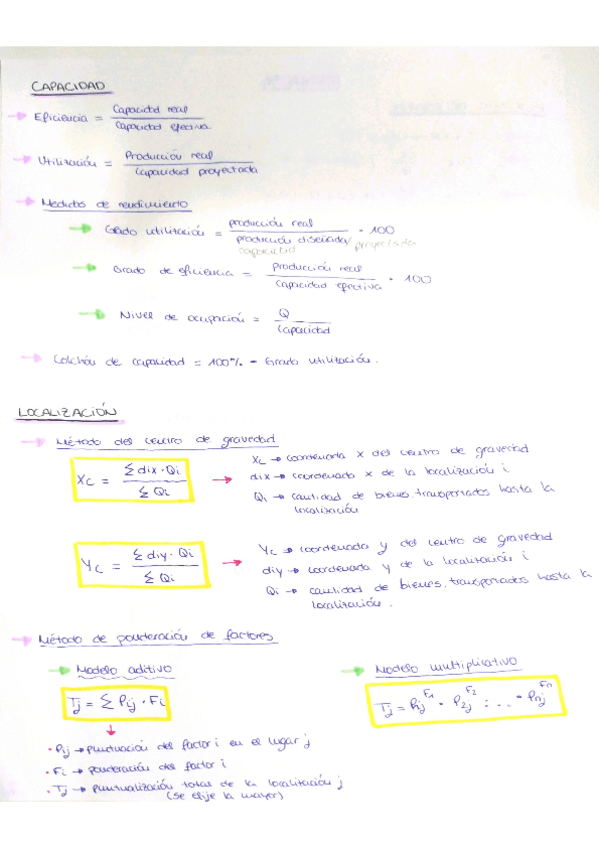 CAPACIDAD
Eficiencia = Capacidad real / Capacidad efectiva
Utilización = Producción real / Capacidad proyectada
Medidas de rendimiento
Grado utilización = producción real / producción diseñada/ proyectada · 100
capacidad
Grado de eficiencia = Producción real / Capacidad efectiva · 100
Nivel de ocupación = Q / Capacidad
Colchón de capacidad = 100% - Grado utilización.
LOCALIZACIÓN
Método del centro de gravedad
Xc = Σ dix · Qi / Σ Qi
Xc → coordenada x del centro de gravedad
dix → coordenada x de la localización i
Qi → cantidad de bienes transportados hasta la
localización
Yc = Σ diy · Qi / Σ Qi
Yc → coordenada y del centro de gravedad
diy → coordenada y de la localización i
Qi → cantidad de bienes transportados hasta la
localización.
Método de ponderación de factores
Modelo aditivo
Tj = Σ Pij · Fi
• Pij → puntuación del factor i en el lugar j
• Fi → ponderación del factor i
• Tj → puntualización total de la localización j
(se elije la mayor)
Modelo multiplicativo
Tj = P1j^F1 · P2j^F2 · ... · Pnj^Fn